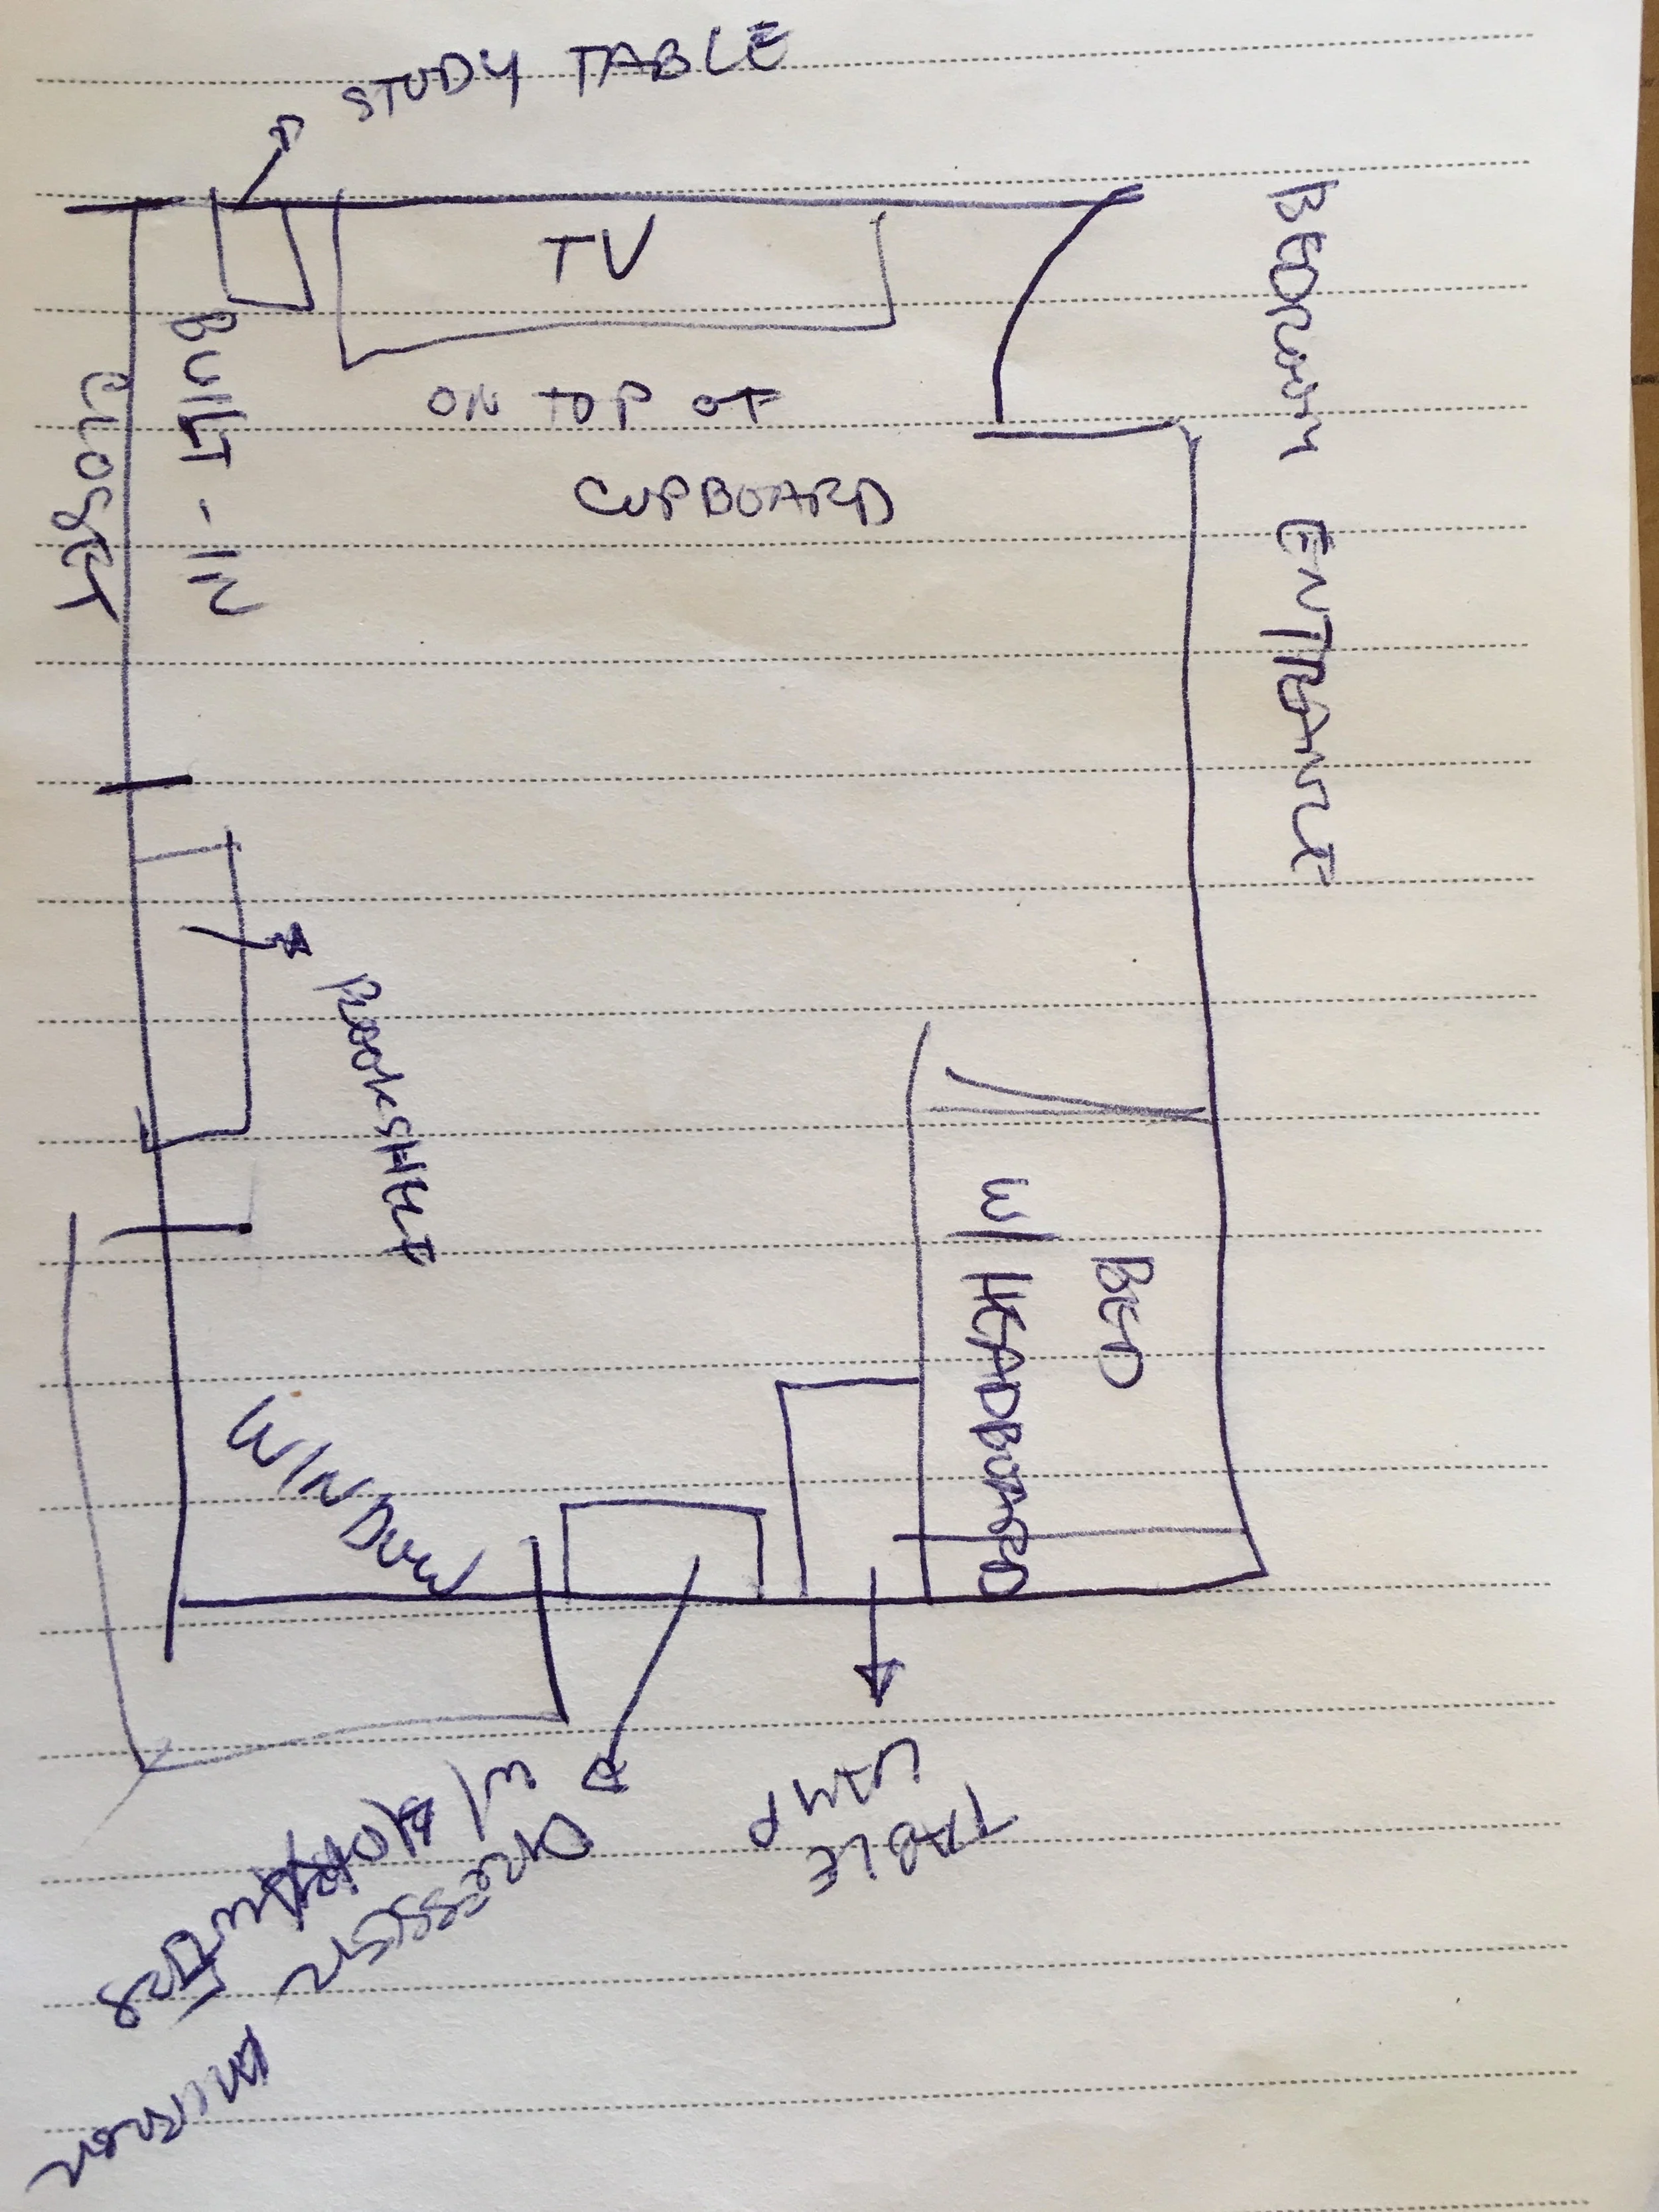 STUDY TABLE
TV
ON TOP OF
CUPBOARD
BEDROOM ENTRANCE
BUILT-IN
CLOSET
BOOKSHELF
BED
W/ HEADBOARD
WINDOW
TABLE
LAMP
DRESSER
W/
MIRROR